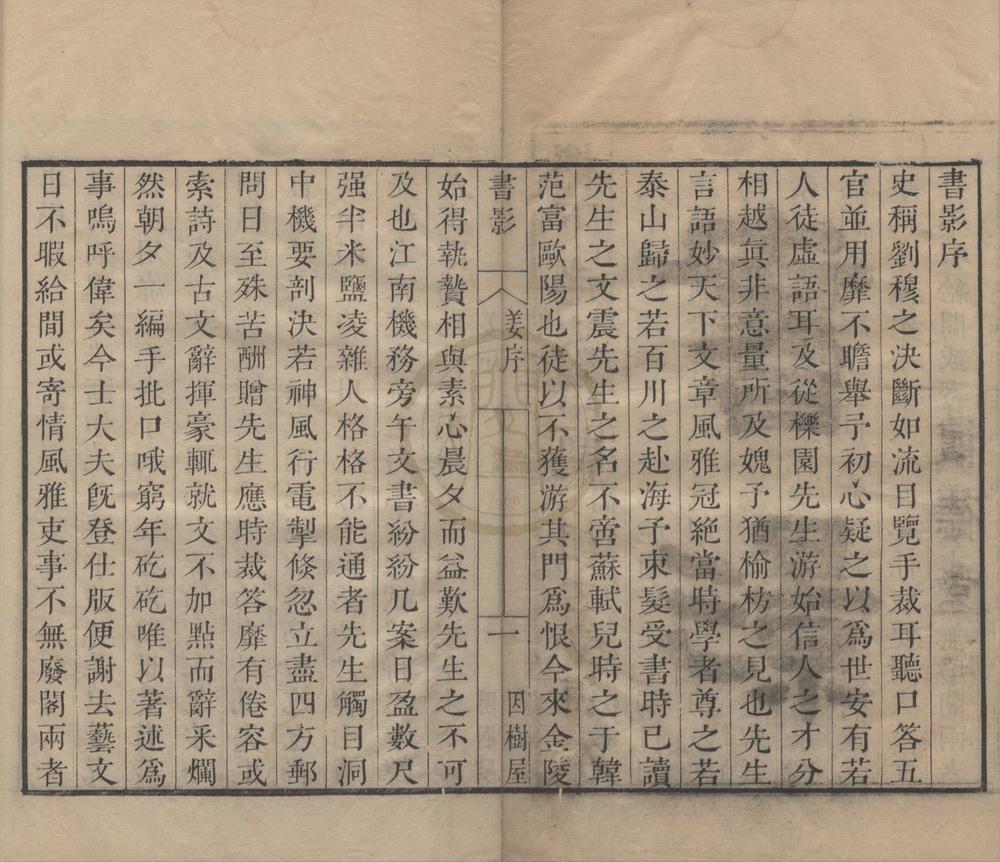 書影序
史稱劉穆之決斷如流目覽手裁耳聽口答五
官並用靡不瞻舉予初心疑之以為世安有若
人徒虛語耳及從櫟園先生游始信人之才分
相越眞非意量所及媿予猶榆枋之見也先生
言語妙天下文章風雅冠絕當時學者尊之若
泰山歸之若百川之赴海予束髮受書時已讀
先生之文震先生之名不啻蘇軾兒時之于韓
范富歐陽也徒以不獲游其門爲恨今來金陵
書影
姜序
一
因樹屋
始得執贄相與素心晨夕而益歎先生之不可
及也江南機務旁午文書紛紛几案日盈數尺
强半米鹽凌雜人格格不能通者先生觸目洞
中機要剖決若神風行電掣倏忽立盡四方郵
問日至殊苦酬贈先生應時裁答靡有倦容或
索詩及古文辭揮豪輒就文不加點而辭采爛
然朝夕一編手批口哦窮年矻矻唯以著述爲
事嗚呼偉矣今士大夫旣登仕版便謝去藝文
日不暇給間或寄情風雅吏事不無廢閣兩者